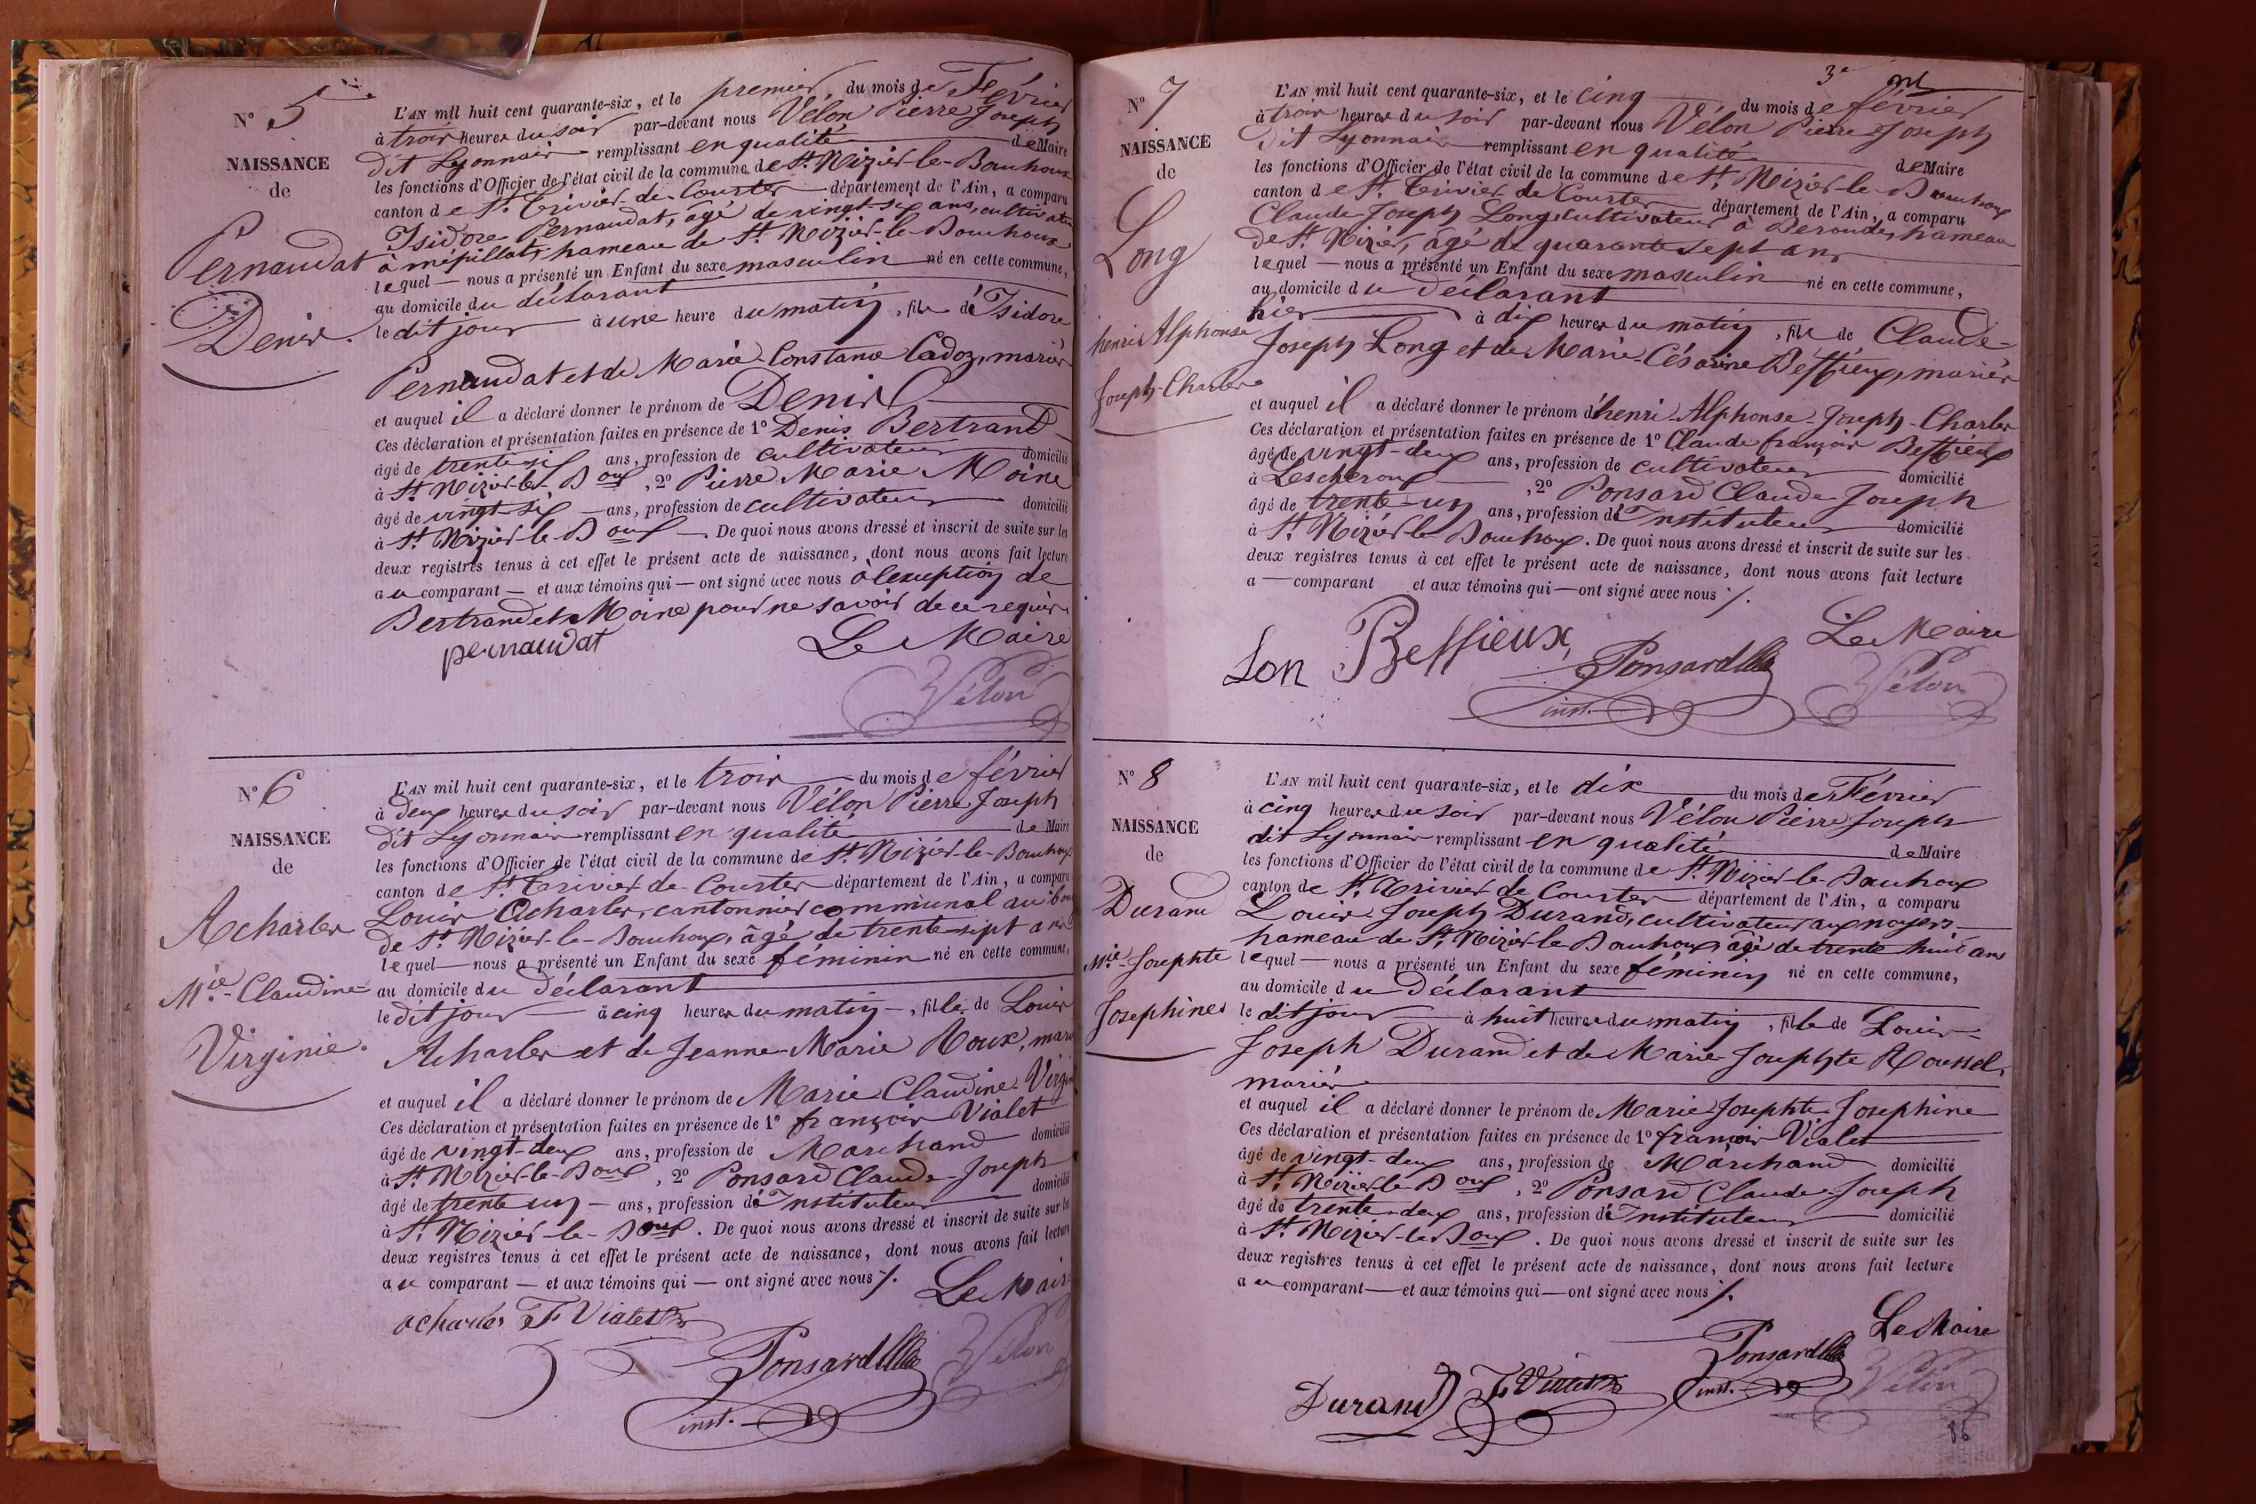 N° 5
NAISSANCE
de
Pernaudat
Denis.
L'AN mil huit cent quarante-six, et le premier, du mois de Février
à trois heures du soir par-devant nous Vélon Pierre Joseph
dit Lyonnais remplissant en qualité de Maire
les fonctions d'Officier de l'état civil de la commune de St. Nizier-le-Bouchoux
canton de St. Trivier-de-Courtes département de l'Ain, a comparu
Isidore Pernaudat, âgé de vingt-six ans, cultivateur
à mépillat, hameau de St Nizier-le-Bouchoux
lequel — nous a présenté un Enfant du sexe masculin né en cette commune,
au domicile du déclarant
le dit jour à une heure du matin, fils de Isidore
Pernaudat et de Marie Constance Cadoz, mariés
et auquel il a déclaré donner le prénom de Denis
Ces déclaration et présentation faites en présence de 1° Denis Bertrand
âgé de trente six ans, profession de cultivateur domicilié
à St Nizier-le-Boux, 2° Pierre Marie Moine
âgé de vingt-six — ans, profession de cultivateur domicilié
à St. Nizier-le-Boux — De quoi nous avons dressé et inscrit de suite sur les
deux registres tenus à cet effet le présent acte de naissance, dont nous avons fait lecture
au comparant — et aux témoins qui — ont signé avec nous à l'exception de
Bertrand et Moine pour ne savoir de ce requis.
pernaudat Le Maire
Vélon
N° 6
NAISSANCE
de
Acharles
Mie-Claudine
Virginie.
L'AN mil huit cent quarante-six, et le trois du mois de février
à deux heures du soir par-devant nous Vélon Pierre Joseph
dit Lyonnais remplissant en qualité de Maire
les fonctions d'Officier de l'état civil de la commune de St. Nizier-le-Bouchoux
canton de St. Trivier-de-Courtes département de l'Ain, a comparu
Louis Acharles, cantonnier communal au
de St Nizier-le-Bouchoux, âgé de trente-sept ans
lequel — nous a présenté un Enfant du sexe féminin né en cette commune,
au domicile du déclarant
le dit jour à cinq heures du matin —, fille de Louis
Acharles et de Jeanne-Marie Roux, mariés
et auquel il a déclaré donner le prénom de Marie Claudine Virginie
Ces déclaration et présentation faites en présence de 1° françois Vialet
âgé de vingt-deux ans, profession de Marchand domicilié
à St. Nizier-le-Boux, 2° Ponsard Claude Joseph
âgé de trente un — ans, profession d'Instituteur domicilié
à St. Nizier-le-Boux. De quoi nous avons dressé et inscrit de suite sur les
deux registres tenus à cet effet le présent acte de naissance, dont nous avons fait lecture
au comparant — et aux témoins qui — ont signé avec nous %. Le Maire
acharles F Vialet
Ponsard Vélon
inst.
3e
N° 7
NAISSANCE
de
Long
henri Alphonse
Joseph-Charles
L'AN mil huit cent quarante-six, et le cinq du mois de février
à trois heures du soir par-devant nous Vélon Pierre Joseph
dit Lyonnais remplissant en qualité de Maire
les fonctions d'Officier de l'état civil de la commune de St. Nizier-le-Bouchoux
canton de St. Trivier de Courtes département de l'Ain, a comparu
Claude-Joseph Long, cultivateur à Beroudes, hameau
de St. Nizier, âgé de quarante sept ans
lequel — nous a présenté un Enfant du sexe masculin né en cette commune,
au domicile du déclarant
hier à dix heures du matin, fils de Claude-
Joseph Long et de Marie-Césarine Beffieux, mariés
et auquel il a déclaré donner le prénom d'henri-Alphonse-Joseph-Charles
Ces déclaration et présentation faites en présence de 1° Claude françois Beffieux
âgé de vingt-deux ans, profession de cultivateur domicilié
à Lescheroux, 2° Ponsard Claude-Joseph
âgé de trente-un ans, profession d'Instituteur domicilié
à St. Nizier-le-Bouchoux. De quoi nous avons dressé et inscrit de suite sur les
deux registres tenus à cet effet le présent acte de naissance, dont nous avons fait lecture
a — comparant et aux témoins qui — ont signé avec nous %.
Lon Beffieux Ponsard Le Maire
inst. Vélon
N° 8
NAISSANCE
de
Durand
Mie-Josephte
Josephine
L'AN mil huit cent quarante-six, et le dix du mois de Février
à cinq heures du soir par-devant nous Vélon Pierre Joseph
dit Lyonnais remplissant en qualité de Maire
les fonctions d'Officier de l'état civil de la commune de St. Nizier-le-Bouchoux
canton de St. Trivier de Courtes département de l'Ain, a comparu
Louis-Joseph Durand, cultivateur aux noyers
hameau de St. Nizier-le-Bouhoux, âgé de trente huit ans
lequel — nous a présenté un Enfant du sexe féminin né en cette commune,
au domicile du déclarant
le dit jour à huit heures du matin, fille de Louis-
Joseph Durand et de Marie Josephte Roussel,
mariés
et auquel il a déclaré donner le prénom de Marie Josephte Josephine
Ces déclaration et présentation faites en présence de 1° françois Vialet
âgé de vingt-deux ans, profession de Marchand domicilié
à St. Nizier-le-Boux, 2° Ponsard Claude-Joseph
âgé de trente-deux ans, profession d'Instituteur domicilié
à St. Nizier-le-Boux. De quoi nous avons dressé et inscrit de suite sur les
deux registres tenus à cet effet le présent acte de naissance, dont nous avons fait lecture
au comparant — et aux témoins qui — ont signé avec nous %.
Le Maire
Durand F Vialet Ponsard inst. Vélon
86